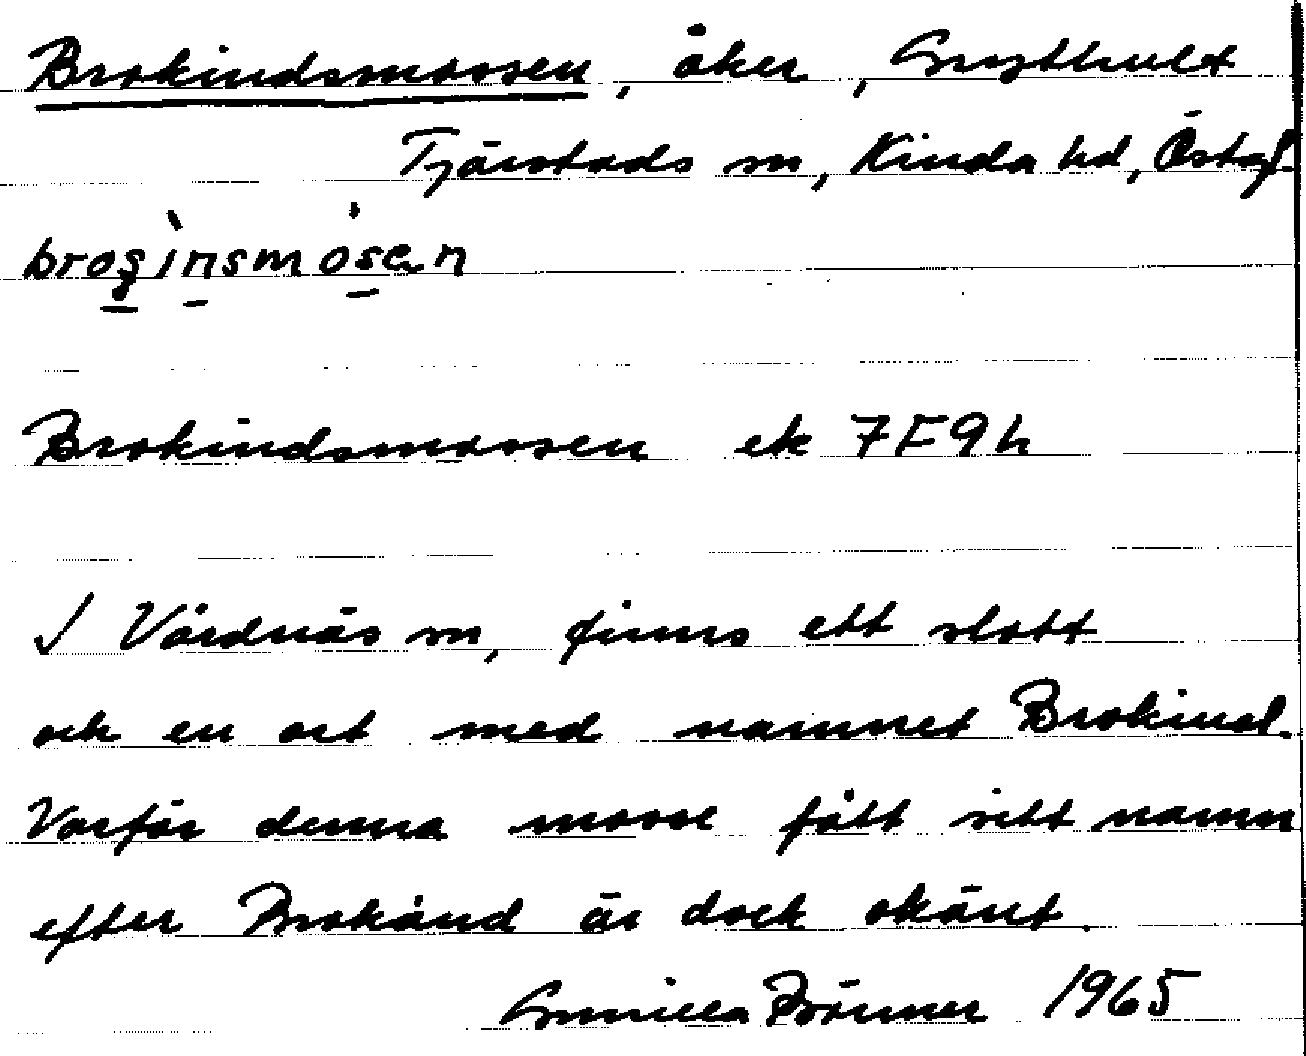 Brokindsmossen, åker, Grythult
Tjärstads sn, Kinda hd, Östgl.
brog̱ìṉsmós̱en
Brokindsmossen ek 7F9h
I Vårdnäs sn, finns ett slott
och en ort med namnet Brokind.
Varför denna mosse fått sitt namn
efter Brokind är dock okänt.
Gunilla Brönner 1965